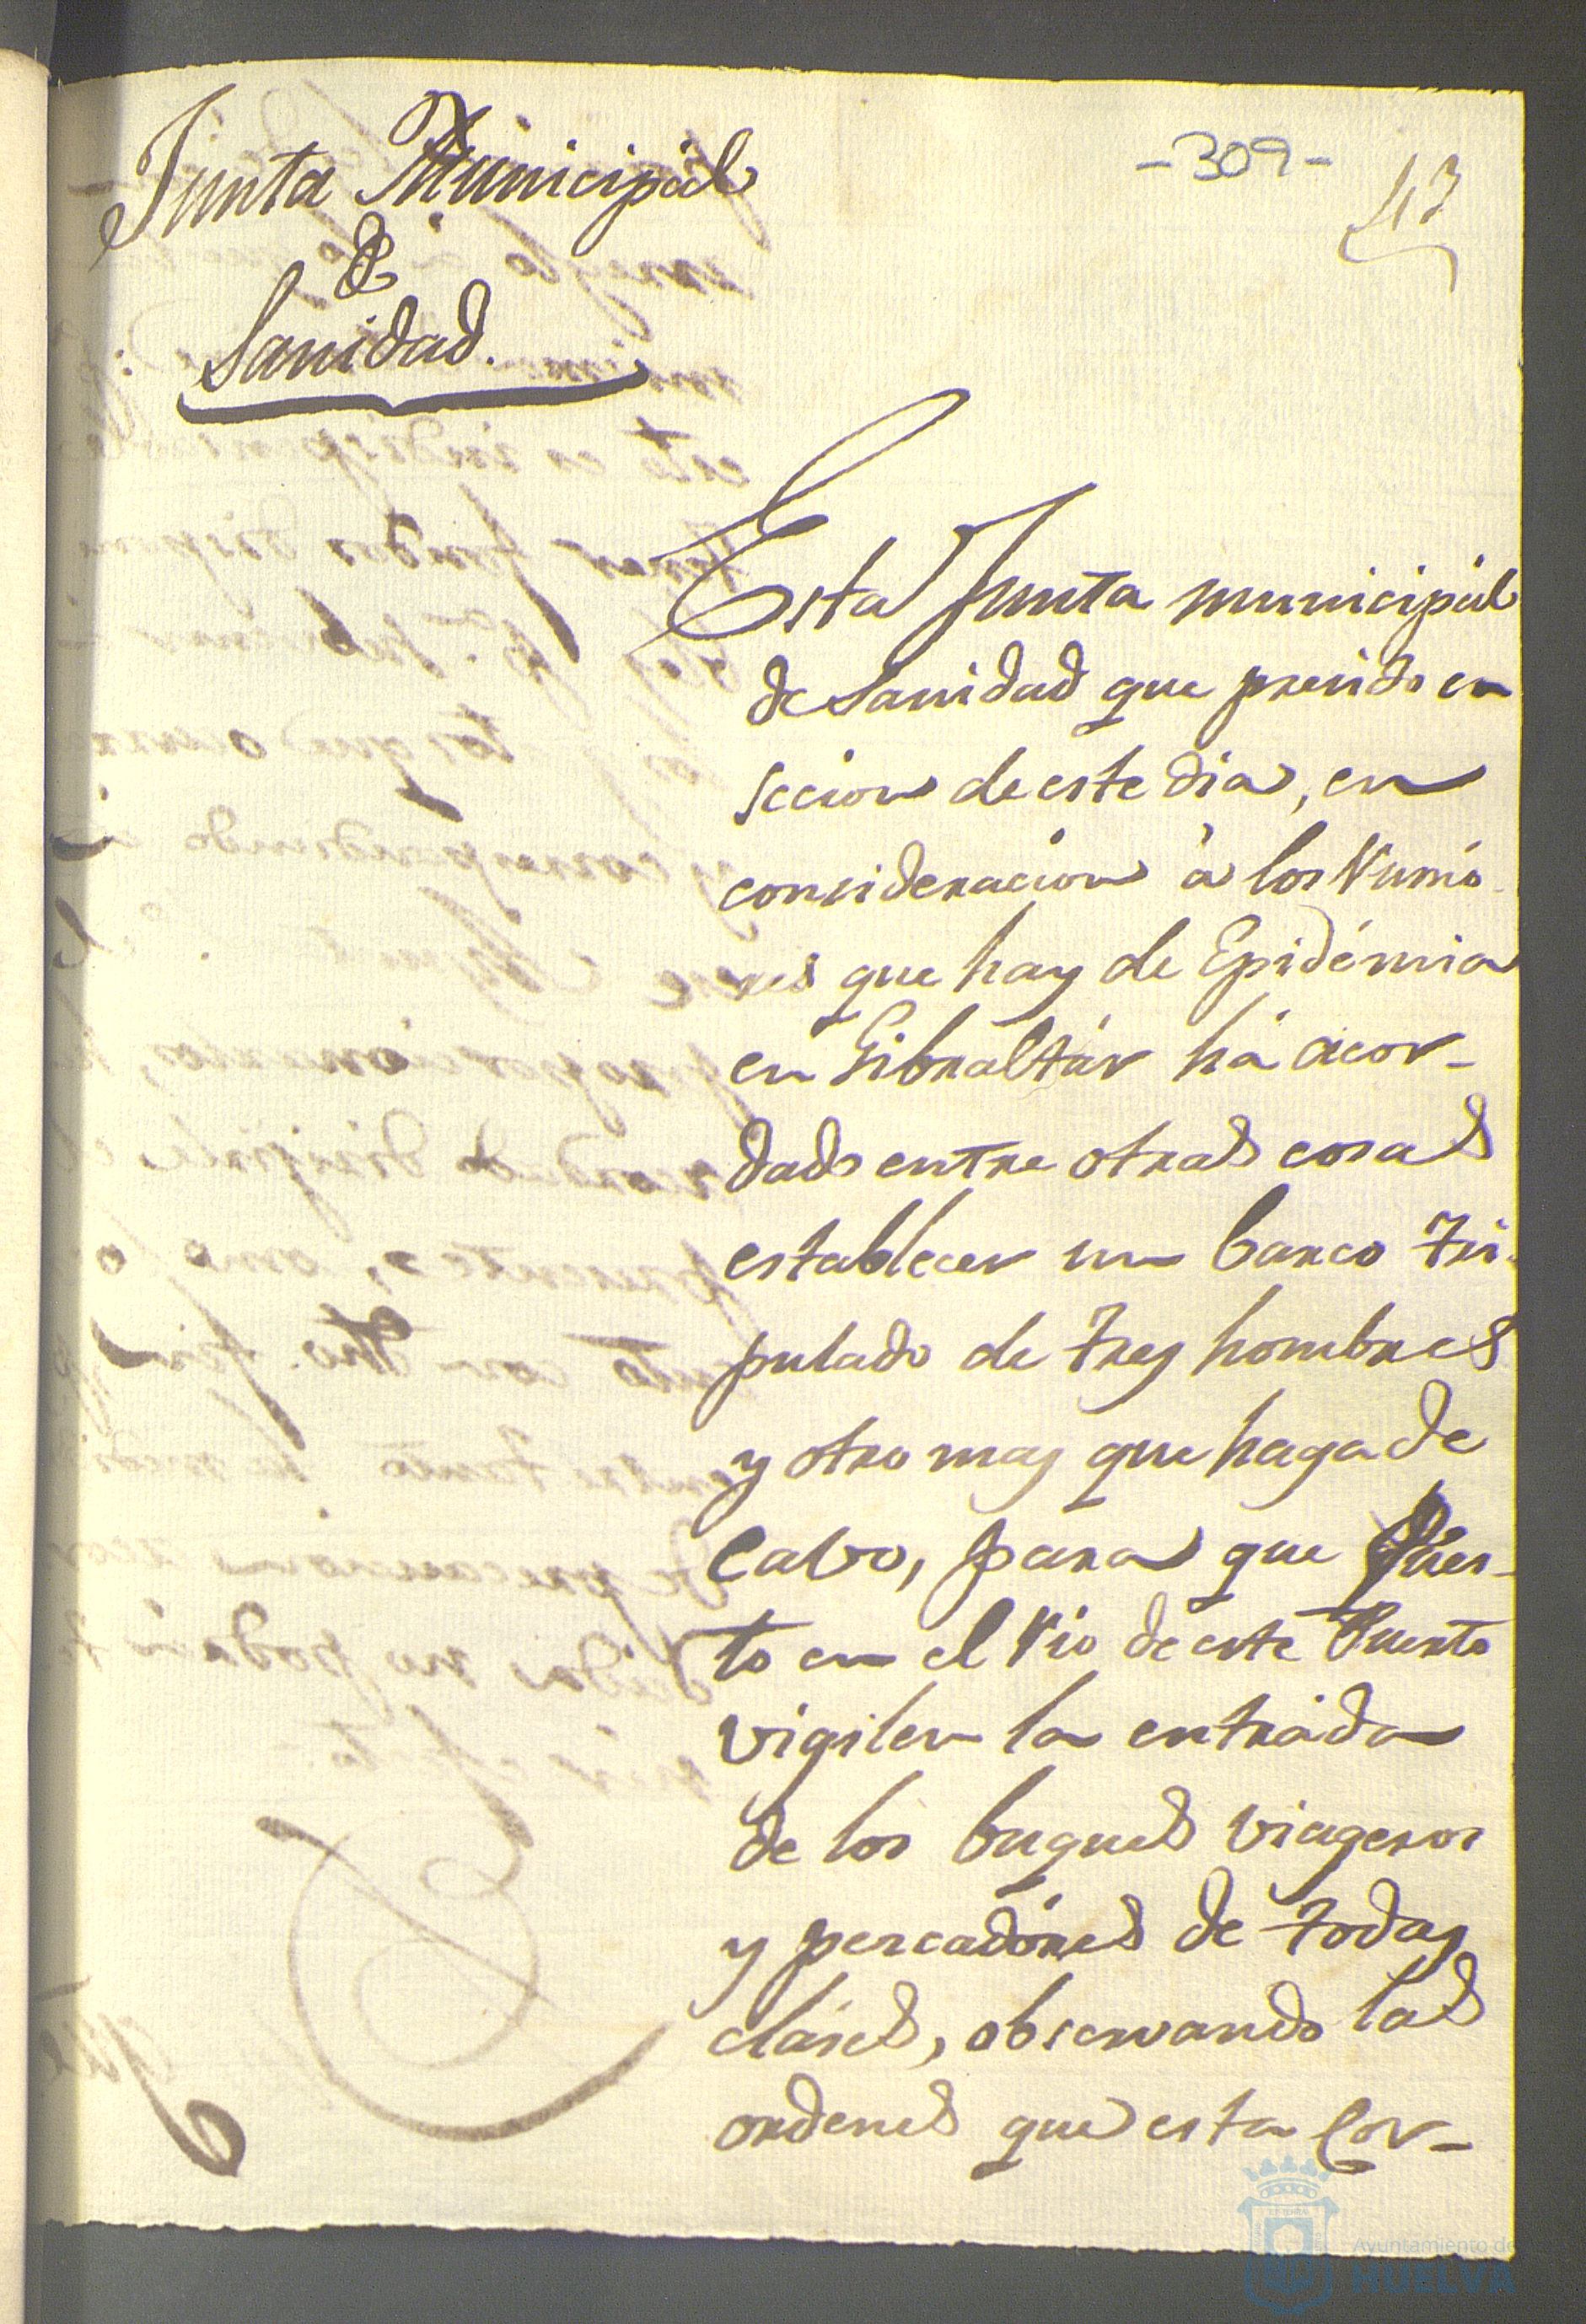 -309-
43
Junta Municipal
de
Sanidad.
Esta Junta municipal
de Sanidad que presido en
seccion de este dia, en
consideracion à los Rumó-
res que hay de Epidémia
en Gibraltár há acor-
dado entre otras cosas
establecer un barco tri-
pulado de tres hombres
y otro mas que haga de
Cabo, para que Pues-
to en el Rio de este Puerto
vigilen la entráda
de los buques viageros
y pescadóres de todas
cláses, observando las
ordenes que esta Cor-
Ayuntamiento de
HUELVA